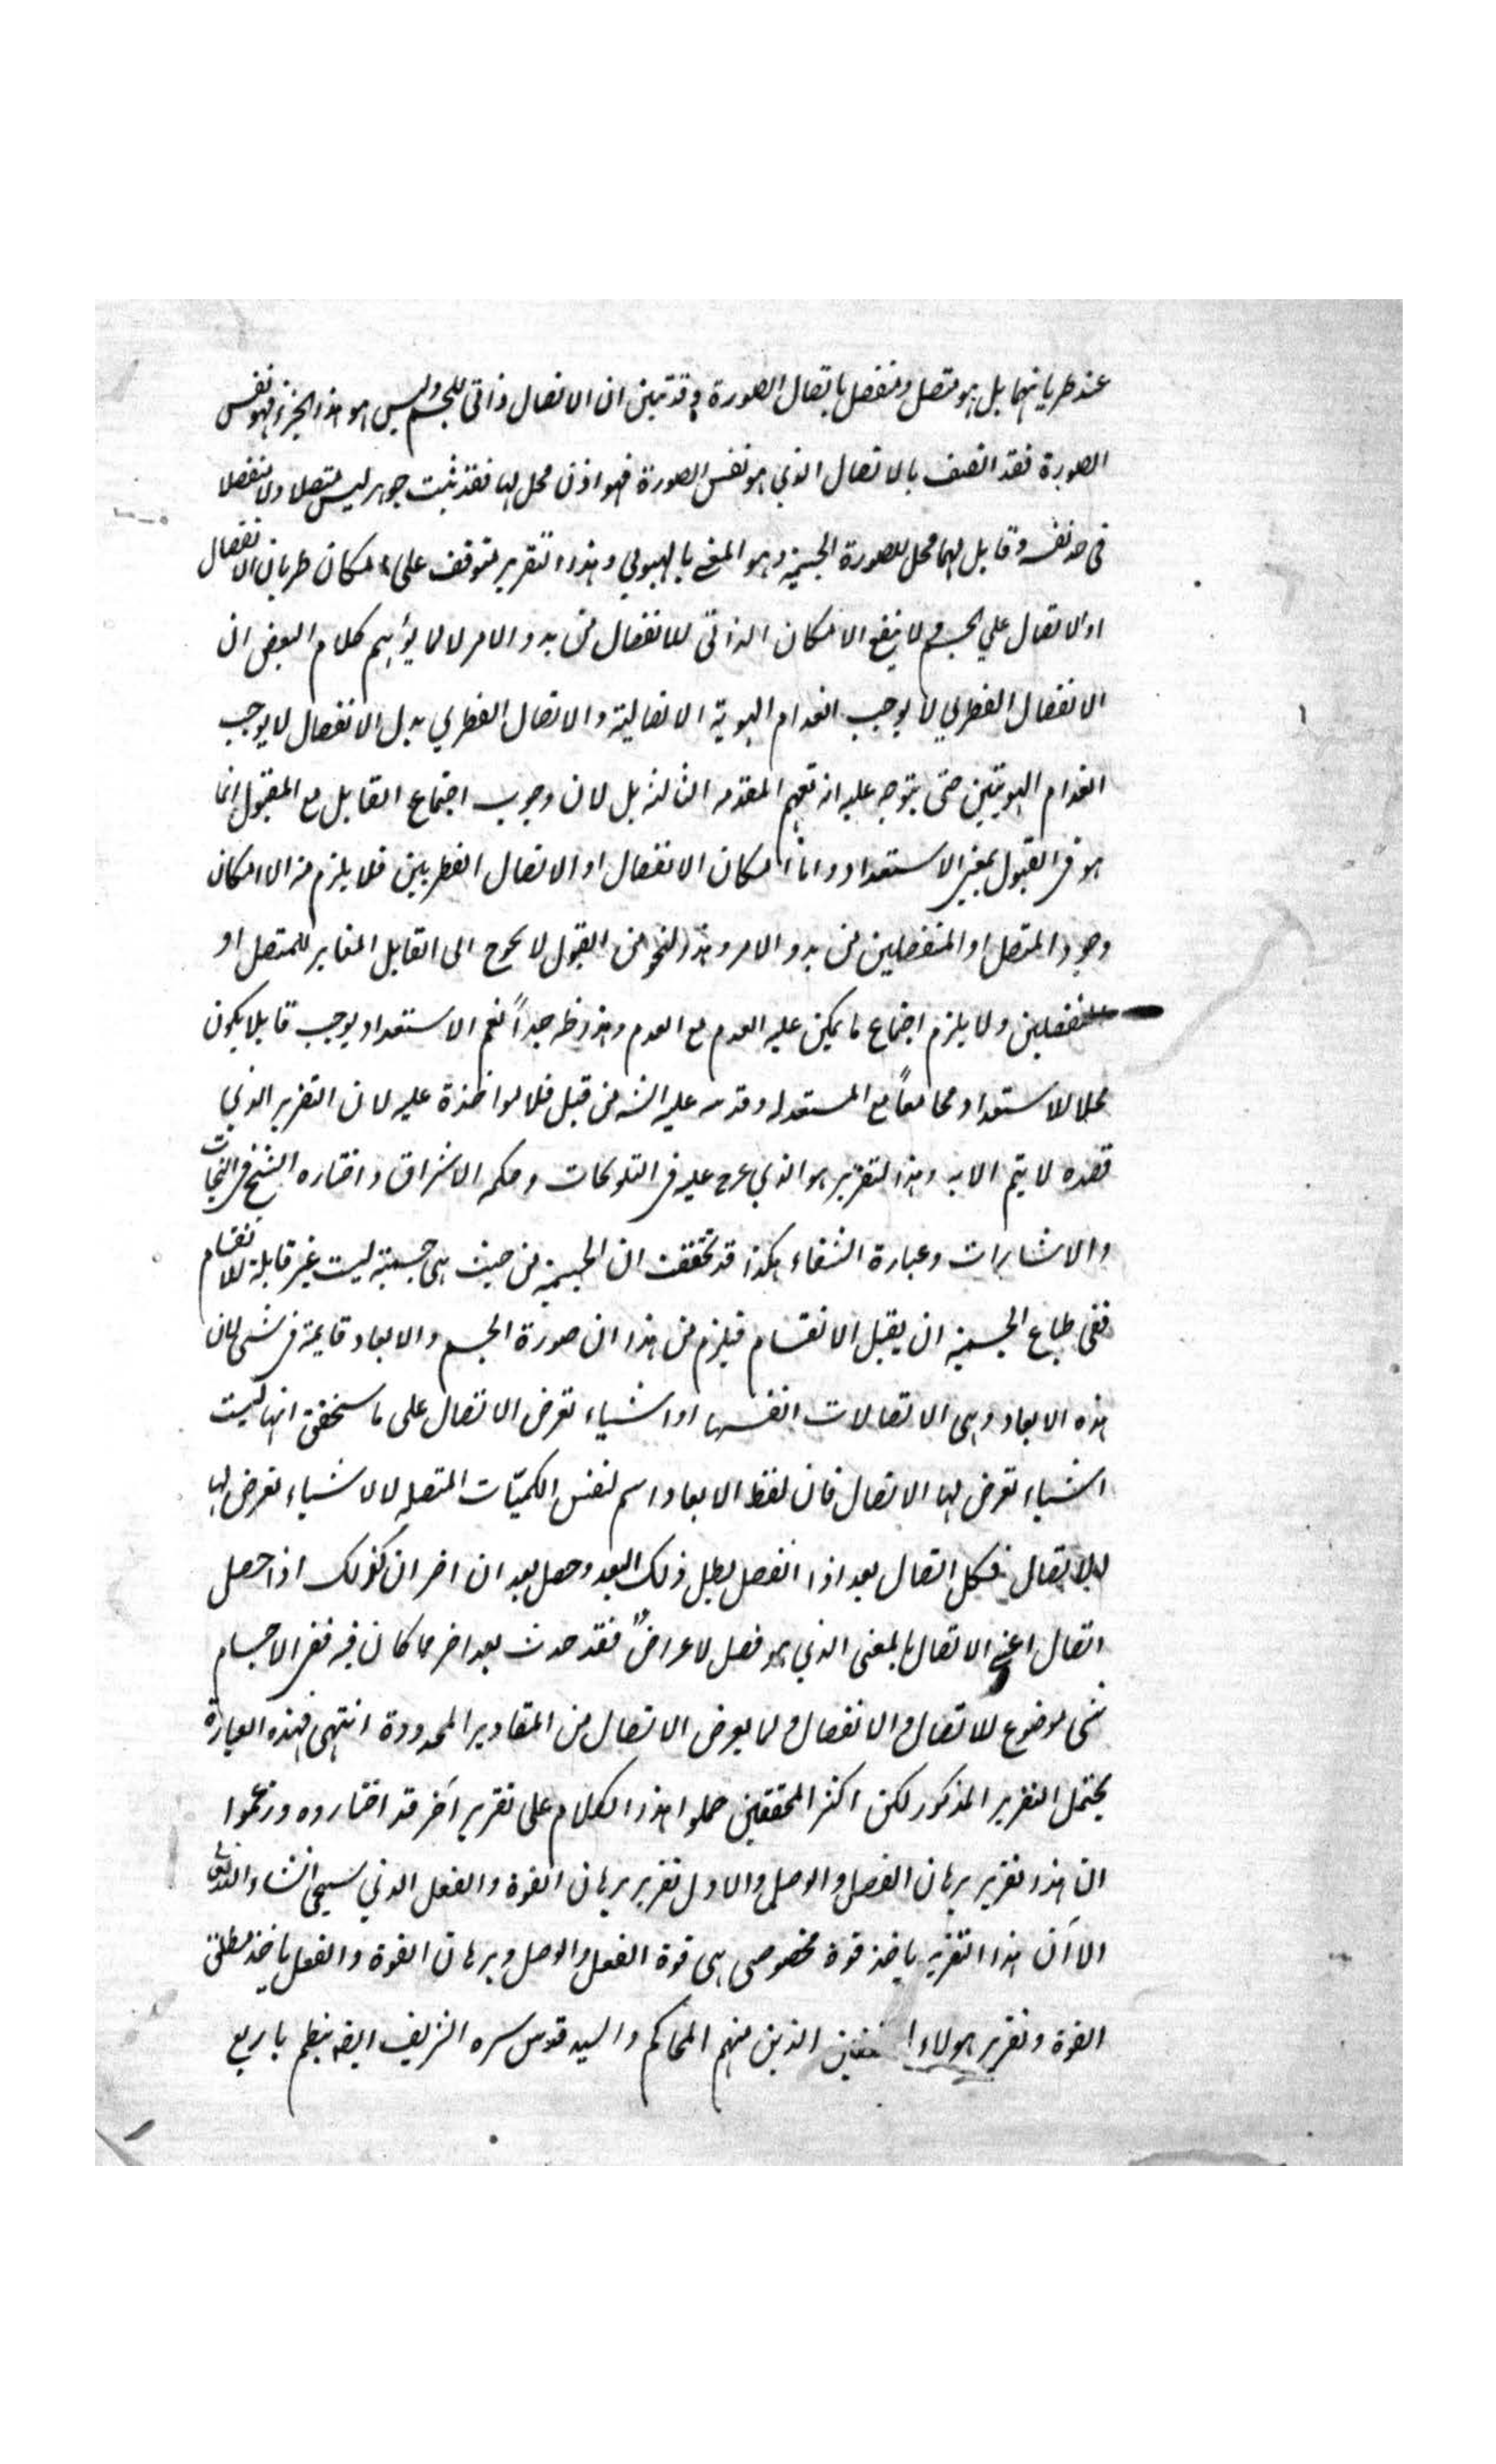 عند طريانهما بل هو متصل ومنفصل باتصال الصورة وقد تبين ان الاتصال ذاتي للجسم وليس هو هذا الجزء فهو نفس
الصورة فقد اتصف بالاتصال الذي هو نفس الصورة فهو اذن محل لها فقد ثبت جوهر ليس متصلا ولا منفصلا
في حد نفسه وقابل لهما محل للصورة الجسمية وهو المعنى بالهيولي وهذا التقرير متوقف على امكان طريان الانفصال
او الاتصال علي الجسم ولا ينفع الامكان الذاتي للانفصال من بدو الامر لا لما يوهم كلام البعض ان
الانفصال الفطري لا يوجب انعدام الهوية الاتصالية والاتصال الفطري بدل الانفصال لا يوجب
انعدام الهويتين حتى يتوجه عليه انه تعميم المقدمه الثالثه بل لان وجوب اجتماع القابل مع المقبول انما
هو في القبول بمعنى الاستعداد واما امكان الانفصال او الاتصال الفطريين فلا يلزم من الامكان
وجود المتصل او المنفصلين من بدو الامر وهذا النحو من القبول لا يحوج الى القابل المغاير للمتصل او
المنفصلين ولا يلزم اجتماع ما يمكن عليه العدم مع العدم وهذا ظه جداً نعم الاستعداد يوجب قابلا يكون
محلا للاستعداد ومجامعاً مع المستعد له وقد مر عليه من قبل فلا مواخذة عليه لان التقرير الذي
قصده لا يتم الا به وهذا التقرير هو الذي عرج عليه في التلويحات وحكمه الاشراق واختاره الشيخ في النجات
والاشارات وعبارة الشفاء هكذا قد تحققت ان الجسمية من حيث هي جسمية ليست غير قابلة للانقسام
ففي طباع الجسمية ان يقبل الانقسام فيلزم من هذا ان صورة الجسم والابعاد قايمة في شى لان
هذه الابعاد وهي الاتصالات انفسها او اشياء تعرض الاتصال على ما سنحقق انها ليست
اشياء تعرض لها الاتصال فان لفظ الابعاد اسم لنفس الكميّات المتصله لا لاشياء تعرض لها
الاتصال فكل اتصال بعد اذا انفصل بطل ذلك البعد وحصل بعد ان اخر ان كذلك اذا حصل
اتصال اعني الاتصال بالمعنى الذي هو فصل لا عرض فقد حدث بعد اخر مما كان فيه ففي الاجسام
شى موضوع للاتصال والانفصال ولما يعرض الاتصال من المقادير المحدودة انتهى فهذه العبارة
يحتمل التقرير المذكور لكن اكثر المحققين حملوا هذا الكلام على تقرير آخر قد اختاروه وزعموا
ان هذا تقرير برهان الفصل والوصل والاول تقرير برهان القوة والفعل الذي سيجي انشاء الله تعالى
الا آن هذا التقرير ياخذ قوة مخصوصى هى قوة الفصل والوصل وبرهان القوة والفعل ياخذ مطلق
القوة وتقرير هولاء الذين منهم المحاكم والسيد قدس سره الشريف ايضه ينظم باربع